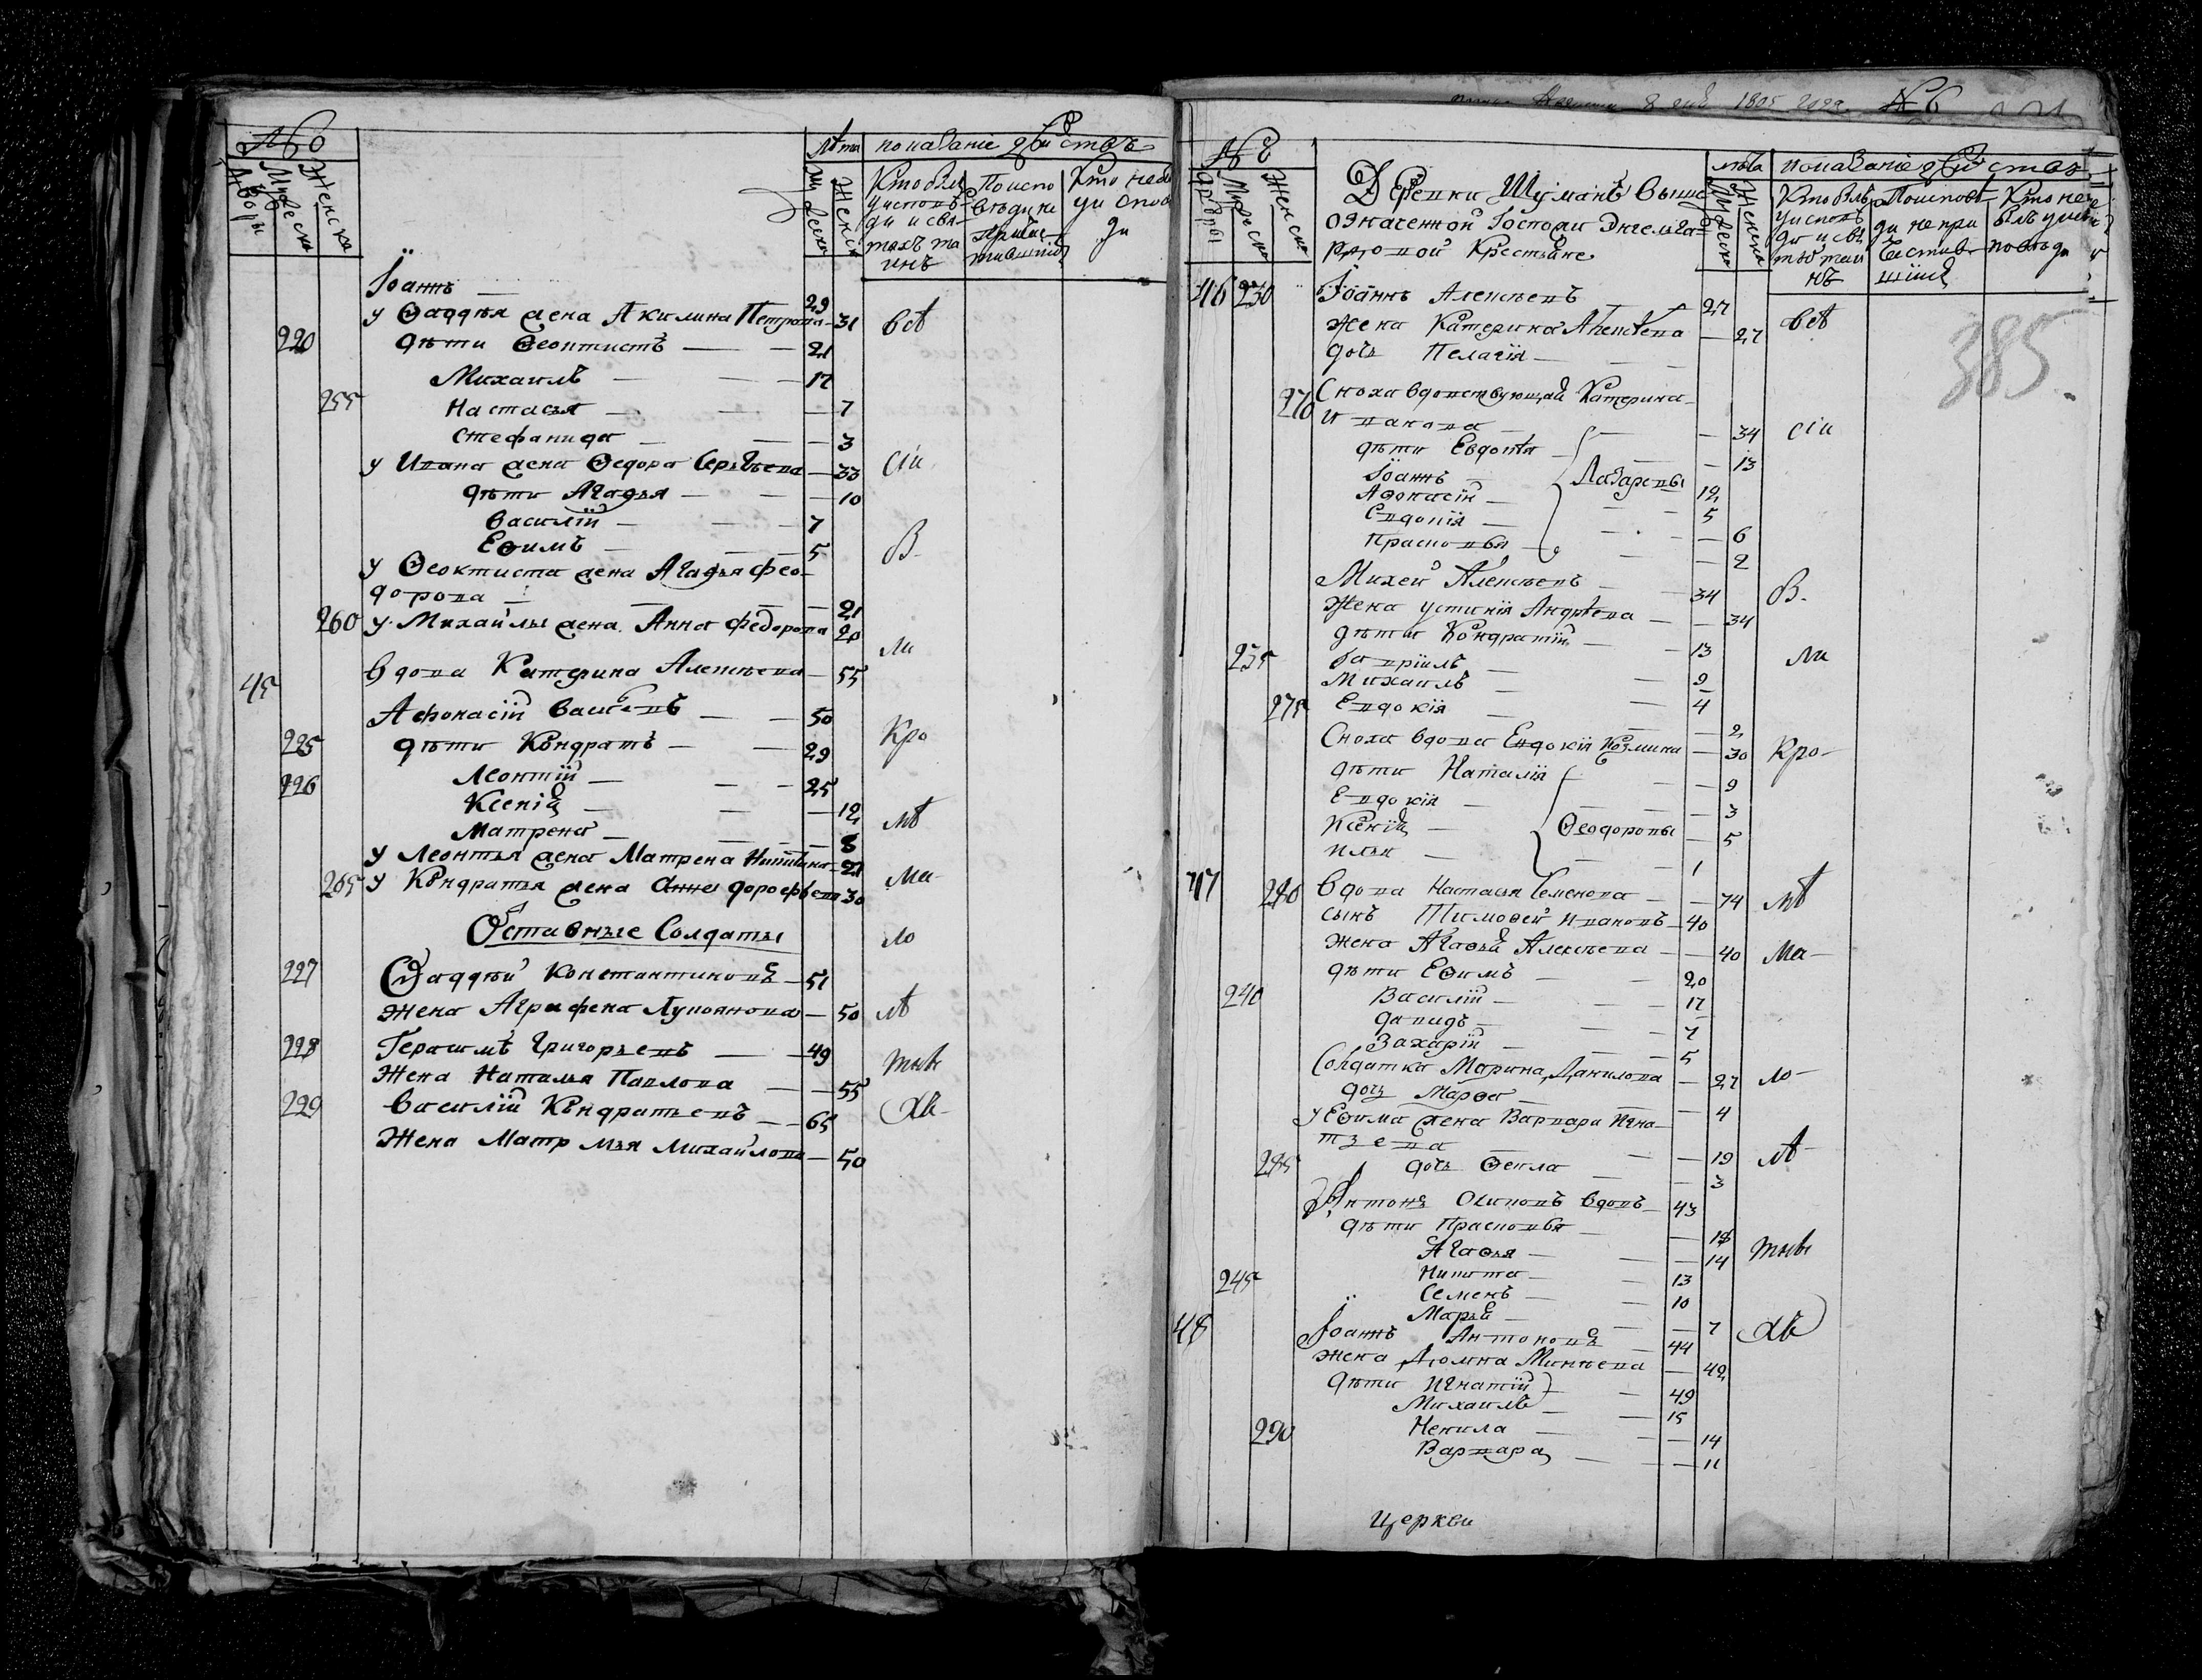 №
Дворы
Мужеска
Женска
Лѣта
Мужеска
Женска
показаніе дѣйствъ
Кто былъ
у исповѣ-
ди и свя-
тыхъ та
инъ
По испо
вѣди не
прича-
тившійся
Кто не бы
у испов
ди
Іоаннъ — 29
у Ѳаддѣя жена Акилина Петрова — 31 всѣ
220 дѣти Ѳеоктистъ — 21
Михаилъ — 17
255 Настасья — 7
Стефанида — 3
у Ивана жена Ѳедора Сергѣева — 33 сіи
дѣти Агафья — 10
Василій — 7
Еѳимъ — 5 В-
у Ѳеоктиста жена Агафья Фео-
дорова — 21
260 у Михайлы жена Анна Федорова 20 ли
вдова Катерина Алексѣева — 55
45
Афонасій Васильевъ — 50
225 дѣти Кондратъ — 29 Кро
226 Леонтій — 25
Ксенія — 12 мѣ
Матрена — 8
у Леонтья жена Матрена Никитина 21
265 у Кондратья жена Анна дорофѣева 30 Ма-
Отставные Солдаты ло
227 Ѳаддѣй Константиновъ — 51
жена Аграфена Лукоянова — 50 лѣ
228 Герасимъ Григорьевъ — 49
Жена Наталья Павлова — 55 тнв
229 Василій Кондратьевъ — 65 хъ-
Жена Матр мья Михайлова — 50
1805
№
Дворы
Мужеска
Женска
Деревни Шуманъ выше
означенной Госпожи Энгельга=
рдовой Крестьяне
лѣта
Мужеска
Женска
показаніе дѣйствъ
Кто былъ
у исповѣ
ди и свя
тыхъ таи
нъ
По исповѣ
ди не при
частив-
шійся
Кто не
былъ у ис
повѣди
385.
46 230 Іоаннъ Алексѣевъ — 27
жена Катерина Алексѣева — 27 всѣ
дочь Пелагія —
270 Сноха вдовствующая Катерина
Иванова — 34 сіи
дѣти Евдокѣя — 13
Іоаннъ — Лазаревы 12
Афонасій — 5
Евдокія — 6
Прасковья — 2
Михей Алексѣевъ — 34 В-
Жена Устинія Андрѣева — 34
дѣти Кондратій — 13 ли
235 Гавріилъ — 9
Михаилъ — 4
275 Евдокія — 2
Сноха вдова Евдокія Козмина — 30 Кро-
дѣти Наталія — 9
Евдокія — 3
Ксенія — Ѳеодоровы 5
Илья — 1
47 280 Вдова Настасья Семенова — 74 мѣ
сынъ Тимоѳей Ивановъ — 40
жена Агаѳья Алексѣева — 40 Ма-
дѣти Еѳимъ — 20
240 Василій — 17
Давидъ — 7
Захарій — 5
Солдатка Марина Данилова — 27 ло-
дочь Марѳа — 4
у Еѳима жена Варвара Игна-
тьева — 19 лѣ-
285 дочь Ѳекла — 3
Антонъ Осиповъ вдовъ — 43
дѣти Прасковья — 18
Агаѳья — 14 тнв
245 Никита — 13
Семенъ — 10
Марья — 7 хъ
48 Іоаннъ Антоновъ — 44
жена Домна Минѣева — 42
дѣти Игнатій — 49
Михаилъ — 15
290 Ненила — 14
Варвара — 11
Церкви